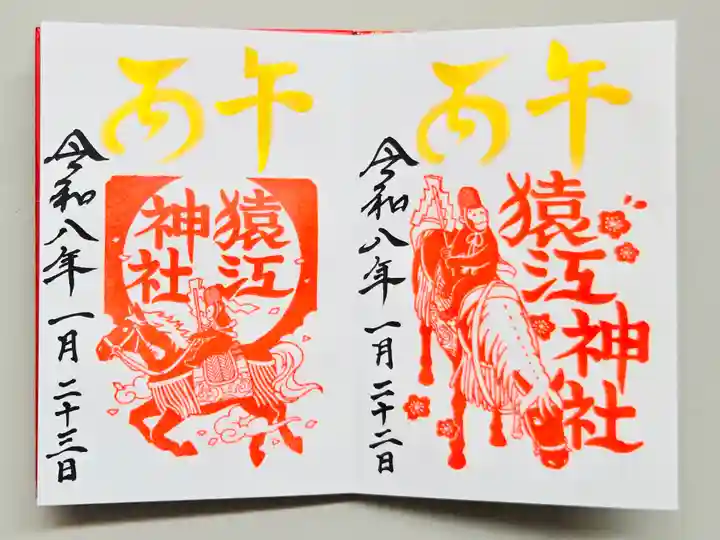 丙午
猿江
神社
令和八年一月二十二日
丙午
猿江
神社
令和八年一月二十三日